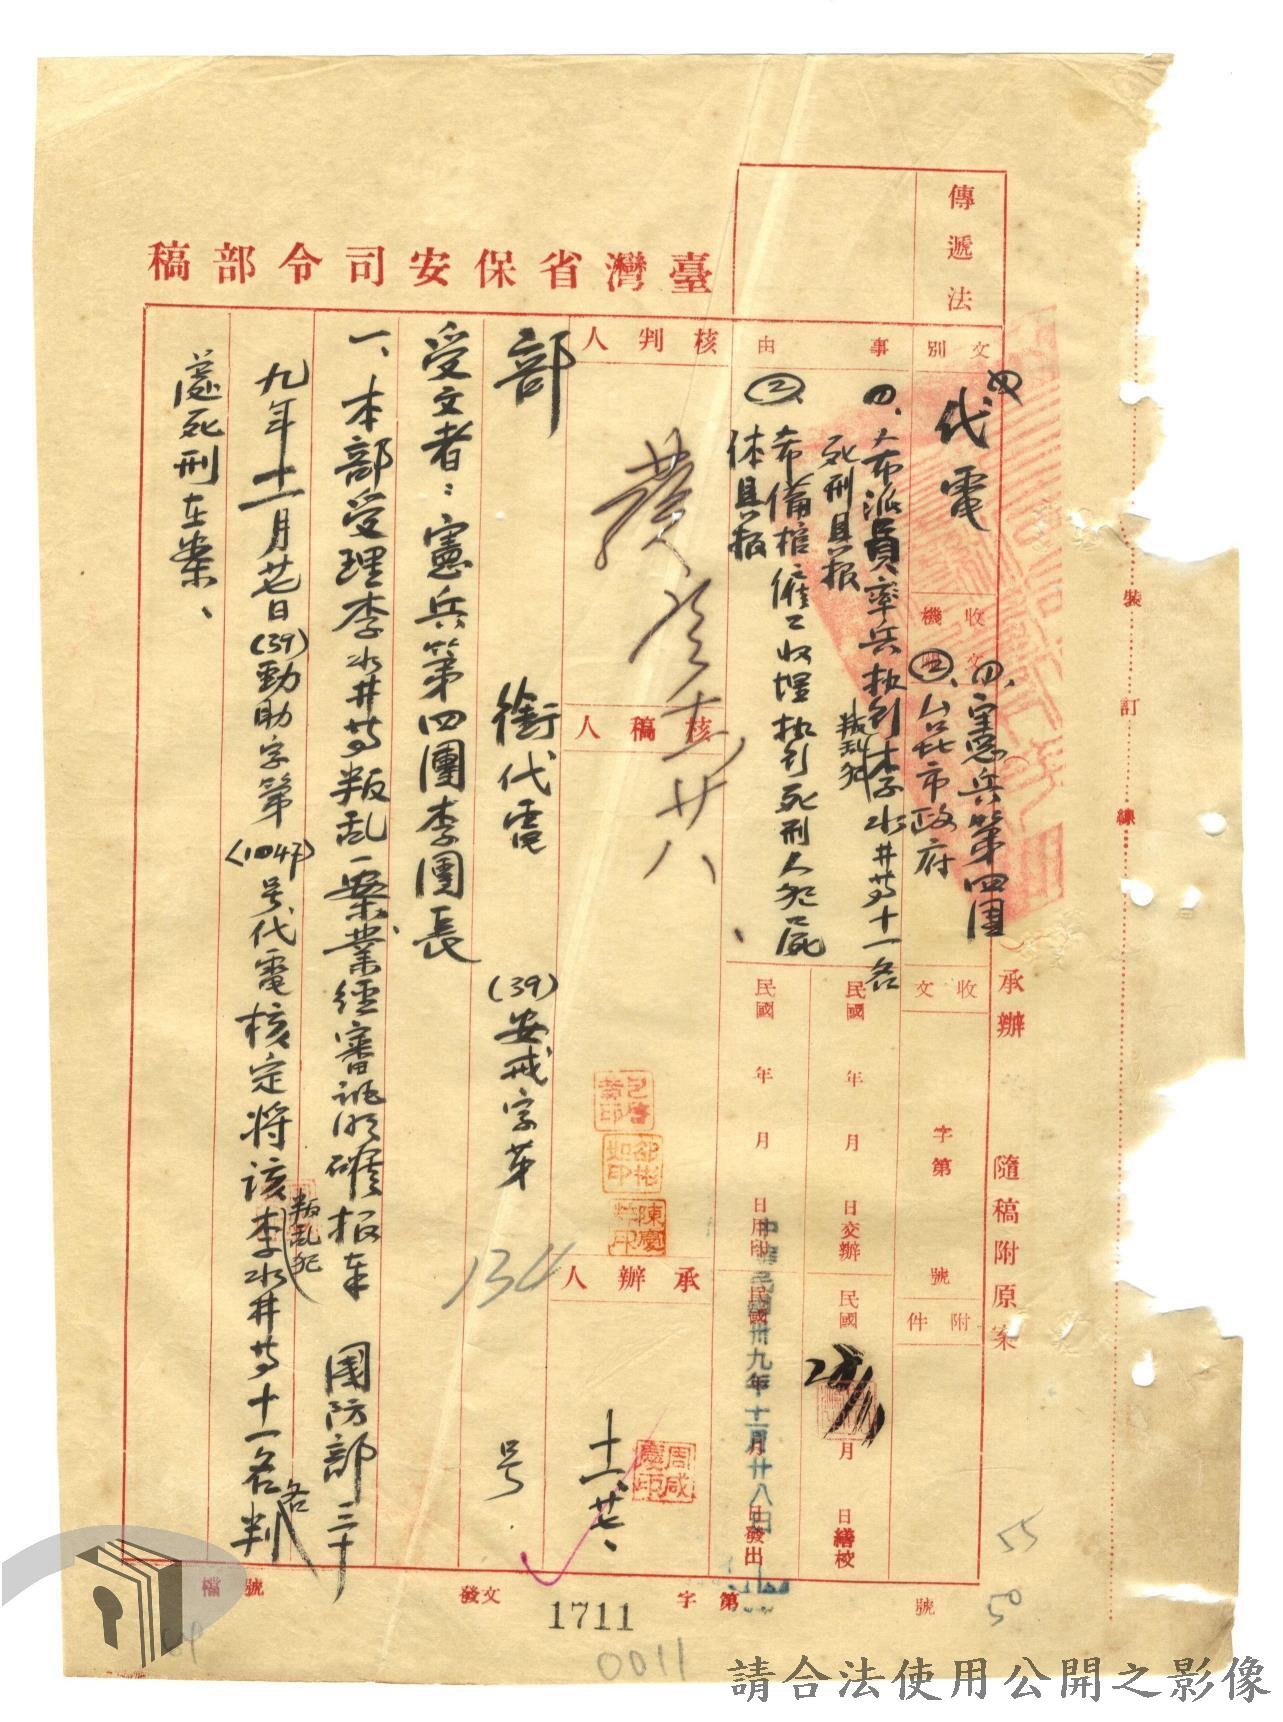 臺灣省保安司令部稿
傳遞法
文別
代電
收文機關
㈠、憲兵第四團
㈡、台北市政府
事由
㈠、希派員率兵執行叛亂犯李水井等十一名
死刑具報
㈡、希備棺僱工收埋執行死刑人犯屍
体具報
收文
字第
號
附件
民國 年 月 日交辦
民國 月 日繕校
民國 年 月 日用印
民國 日發出
中華民國卅九年十一月廿八日
核判人
十一廿八
核稿人
承辦人
周咸慶印
十一、廿七、
部
銜代電
(39)安戒字第
134
号
受文者：憲兵第四團李團長
一、本部受理李水井等叛乱一案、業經審訊明確報奉 國防部三十
九年十一月廿七日(39)勁助字第〈1047〉号代電核定將該叛乱犯李水井等十一名各判
處死刑在案、
承辦
隨稿附原案
裝
訂
線
檔號
發文
1711
字第
號
0011
55
50
請合法使用公開之影像